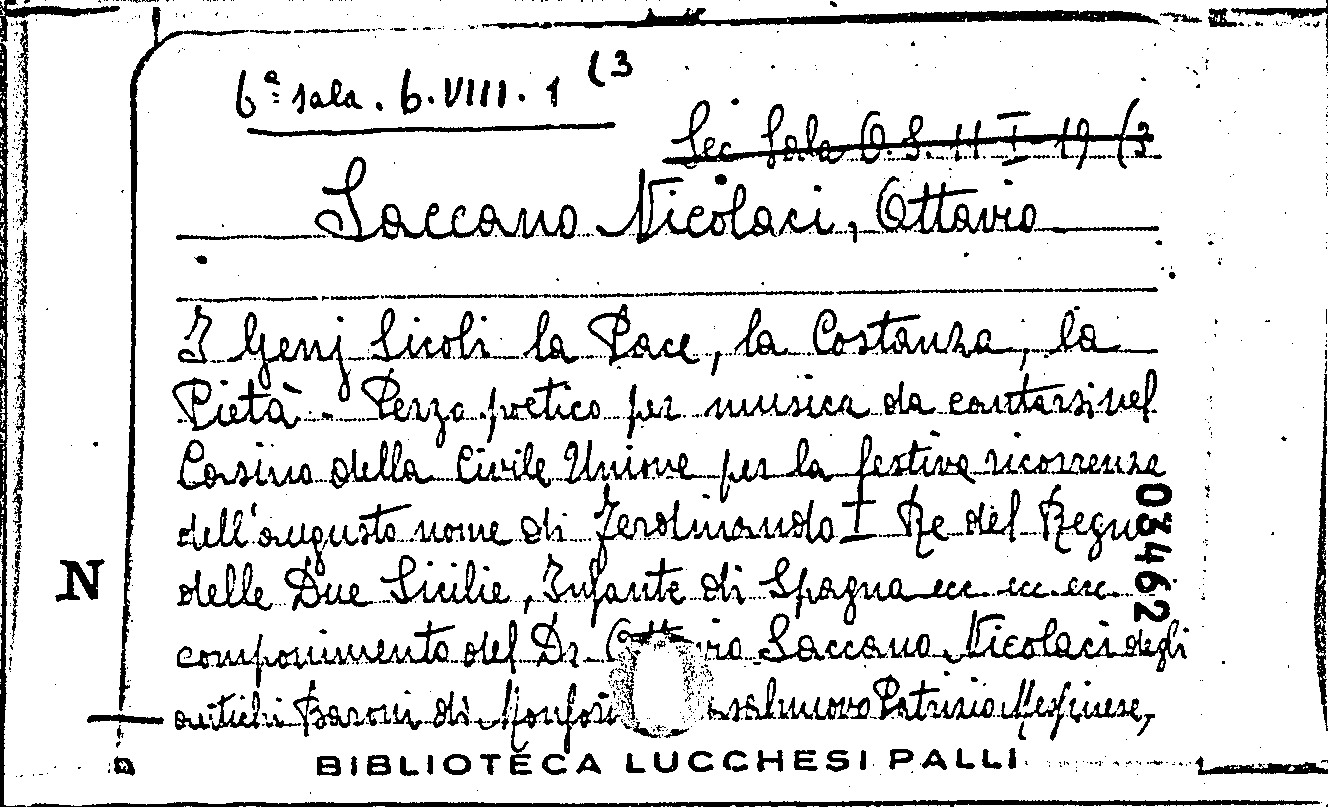 6ª sala. 6.VIII.1 (3
Sec Sala O.S. II I 19 (3
Saccano Nicolaci, Ottavio
I Genj Sicoli la Pace, la Costanza, la
Pietà - Perzo poetico per musica da cantarsi nel
Casino della Civile Unione per la festiva ricorrenza
dell'augusto nome di Ferdinando I Re del Regno
delle Due Sicilie, Infante di Spagna ecc. ecc. ecc.
componimento del Dr. Ottavio Saccano Nicolaci degli
antichi Baroni di Patrizio Messinese,
N
03462
BIBLIOTECA LUCCHESI PALLI